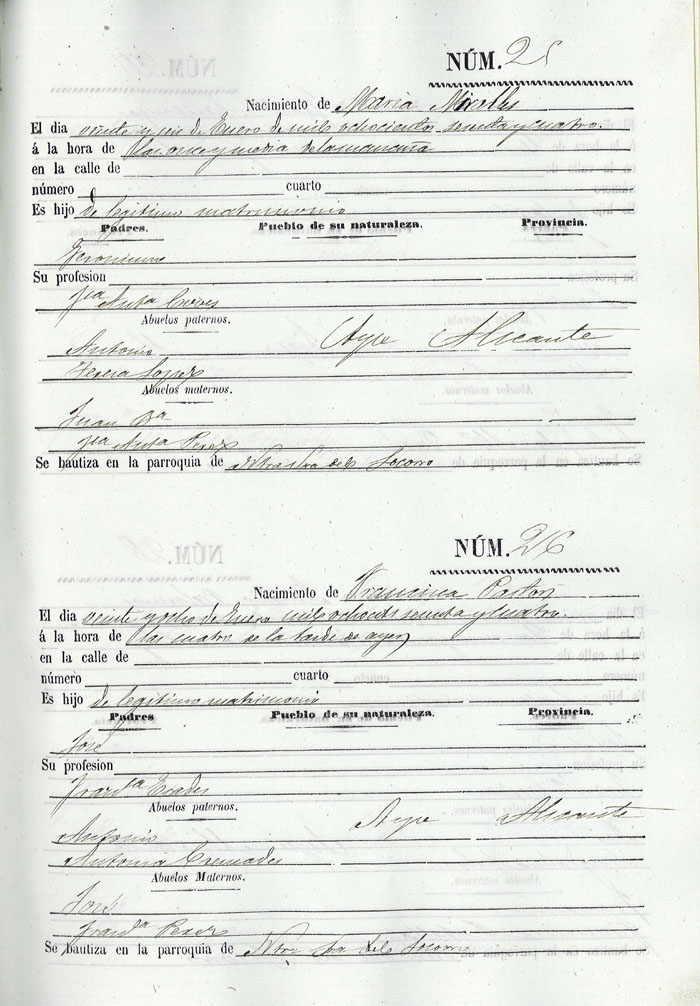 NÚM. 25
Nacimiento de Maria Miralles
El dia veinte y seis de Enero de mil ochocientos sesenta y cuatro.
á la hora de las once y media de la mañana
en la calle de
número cuarto
Es hijo de legitimo matrimonio
Padres. Pueblo de su naturaleza. Provincia.
Geronimo
Su profesion
Jfa Anta
Abuelos paternos.
Aspe Alicante
Antonio
Teresa Lopez
Abuelos maternos.
Juan Bta
Jfa Anta Perez
Se bautiza en la parroquia de Ntra Sra del Socorro
NÚM. 26
Nacimiento de Francisca Pastor
El dia veinte y ocho de Enero mil ochocts sesenta y cuatro.
á la hora de las cuatro de la tarde de ayer
en la calle de
número cuarto
Es hijo de legitimo matrimonio
Padres Pueblo de su naturaleza. Provincia.
José
Su profesion
Franca
Abuelos paternos.
Aspe Alicante
Antonio
Antonia Cremades
Abuelos Maternos.
José
Franca Perez
Se bautiza en la parroquia de Ntra Sra del Socorro